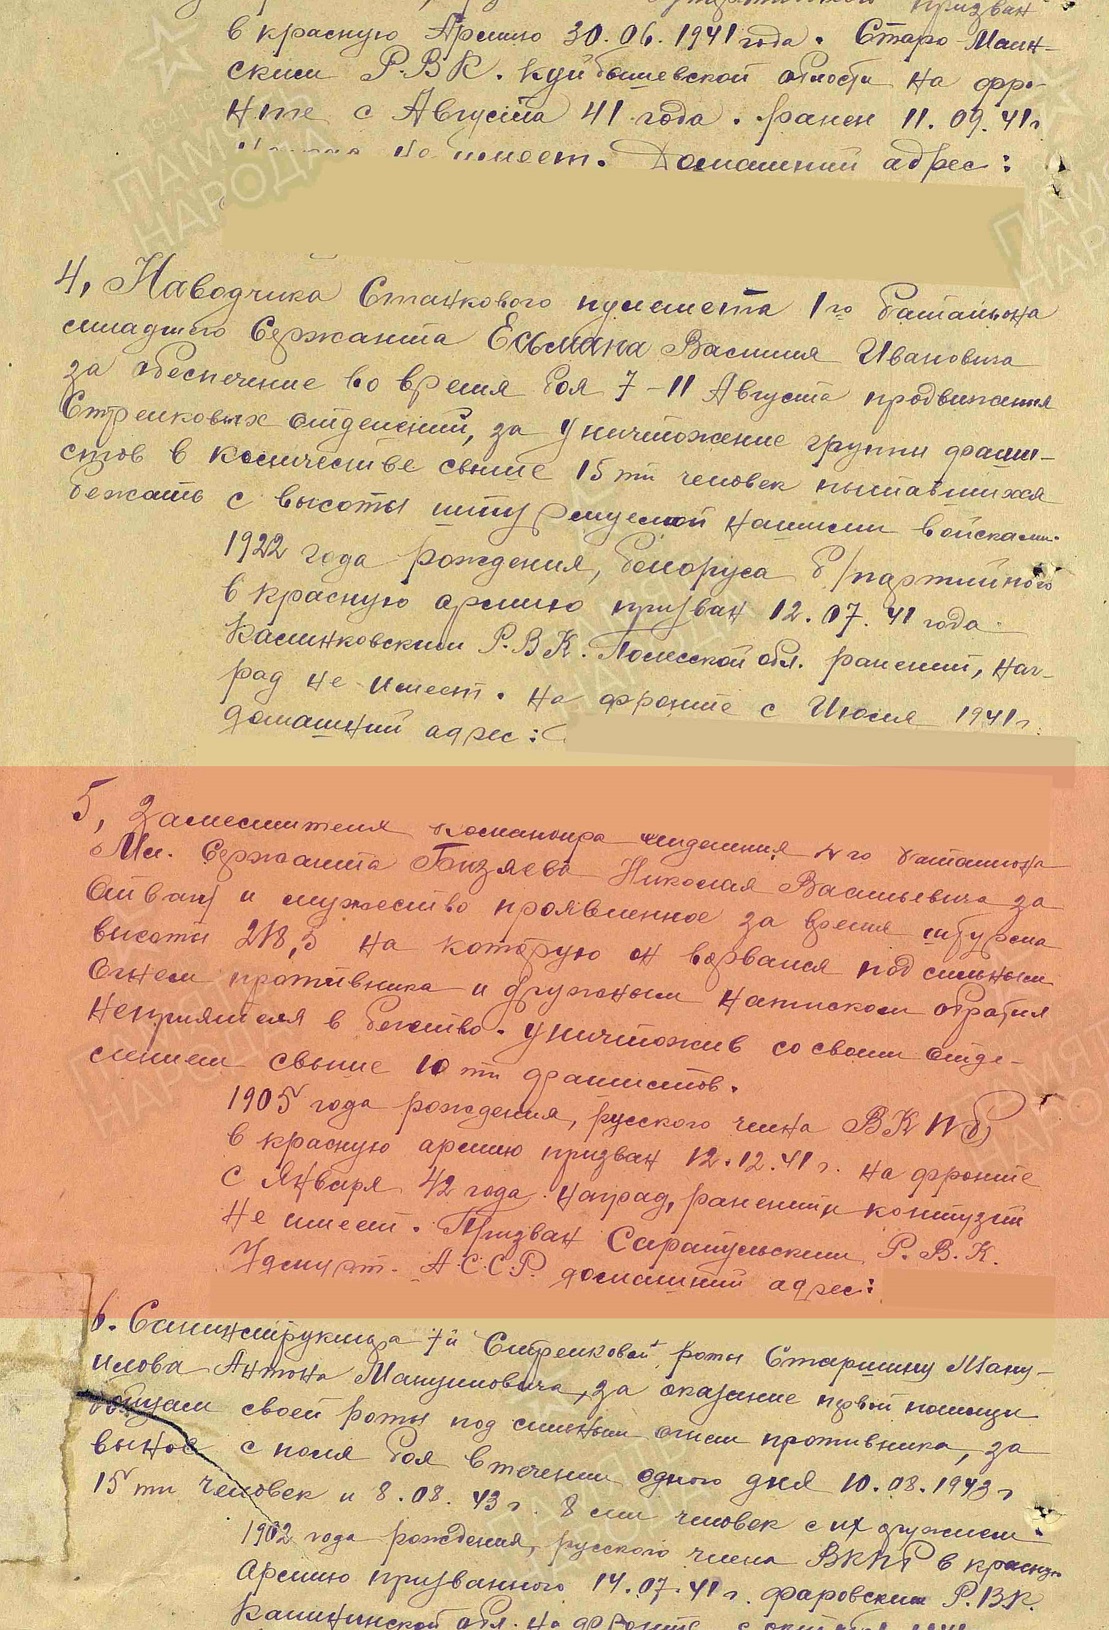 призван
в красную Армию 30.06.1941 года. Старо-Маин-
ским Р.В.К. Куйбышевской области на фро-
нте с Августа 41 года. ранен 11.09.41 г
не имеет. Домашний адрес:
4, Наводчика Станкового пулемета 1го батальона
младшего Сержанта Есьмана Василия Ивановича
за обеспечение во время боя 7-11 Августа продвижения
Стрелковых отделений, за уничтожение группы фаши-
стов в количестве свыше 15ти человек пытавшихся
бежать с высоты штурмуемой нашими войсками.
1922 года рождения, белоруса б/партийного
в красную армию призван 12.07.41 года
Калинковским Р.В.К. Полесской обл. ранений, наг-
рад не имеет. на фронте с Июля 1941 г.
домашний адрес:
5, Заместителя командира отделения го баталиона
Мл. Сержанта Николая Васильевича за
отвагу и мужество проявленное за время штурма
высоты на которую он ворвался под сильным
огнем противника и дружным натиском обратил
неприятеля в бегство. уничтожив со своим отде-
лением свыше 10ти фашистов.
1905 года рождения, русского члена ВКП(б)
в красную армию призван 12.12.41 г. на фронте
с Января 42 года. наград, ранений и контузий
не имеет. Призван Сарапульским Р.В.К.
Удмурт. А.С.С.Р. домашний адрес:
6. Санинструктора 7й Стрелковой роты Старшину Ману-
илова Антона Мануиловича, за оказание первой помощи
бойцам своей роты под сильным огнем противника, за
вынос с поля боя в течении одного дня 10.08.1943 г
15ти человек и 8.08.43 г. 8ми человек с их оружием.
1902 года рождения, русского члена ВКПб в красную
Армию призванного 14.07.41 г. Р.В.К.
Калининской обл. на фронте с
ПАМЯТЬ
НАРОДА